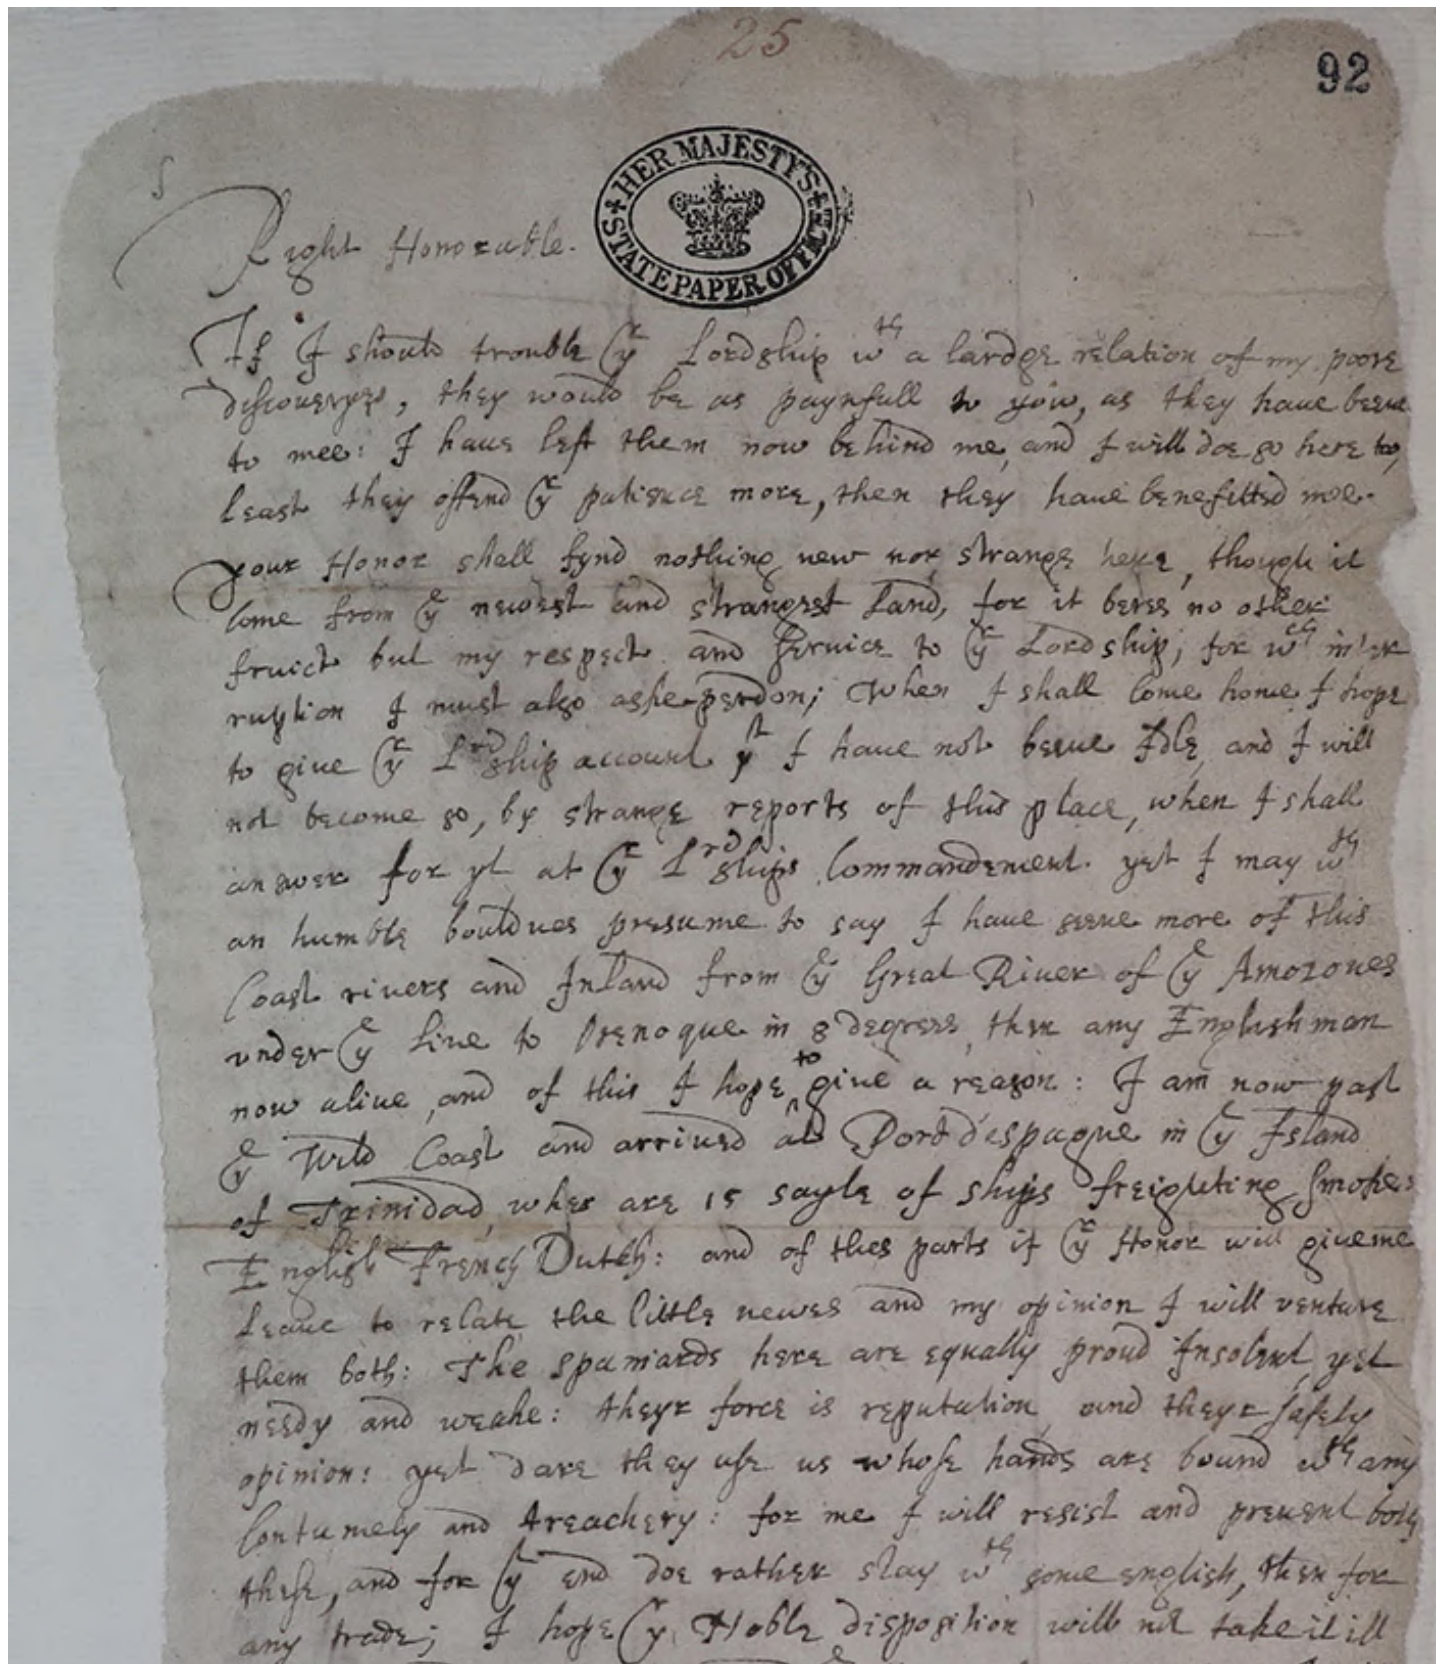 25
92
HER MAJESTY'S STATE PAPER OFFICE
Right Honorable.
If I should trouble yr Lordship wth a lardge relation of my poore
discoueryes, they would be as paynfull to yow, as they haue beene
to mee: I haue left them now behind me, and I will doe so here too,
least they offend yr patience more, then they haue benefitted mee.
your Honor shall fynd nothing new nor strange here, though it
Come from ye newest and strangest Land, for it beres no other
fruict but my respect and seruice to yr Lordship; for wch inter
ruption I must also aske perdon; When I shall Come home I hope
to giue yr Lrdship account yt I haue not beene Idle, and I will
not become so, by strange reports of this place, when I shall
answer for yt at yr Lrdships Commandement. yet I may wth
an humble bouldnes presume to say I haue seene more of this
Coast rivers and Inland from ye Great River of ye Amozones
vnder ye Line to Orenoque in 8 degrees, then any Englishman
now aliue, and of this I hope to giue a reason: I am now past
ye Wild Coast and arriued att Port d'espagne in ye Island
of Trinidad, wher are 15 sayle of ships freighting Smoke:
English French Dutch: and of thes parts if yr Honor will giue me
Leaue to relate the little newes and my opinion I will venture
them both: The spaniards here are equally proud Insolent, yet
needy and weake: theyr force is reputation, and theyr safety
opinion: yet dare they use us whose hands are bound wth any
Contumely and treachery: for me I will resist and prevent both
these, and for yt end doe rather stay wth some english, then for
any trade; I hope yr Noble disposition will not take it ill